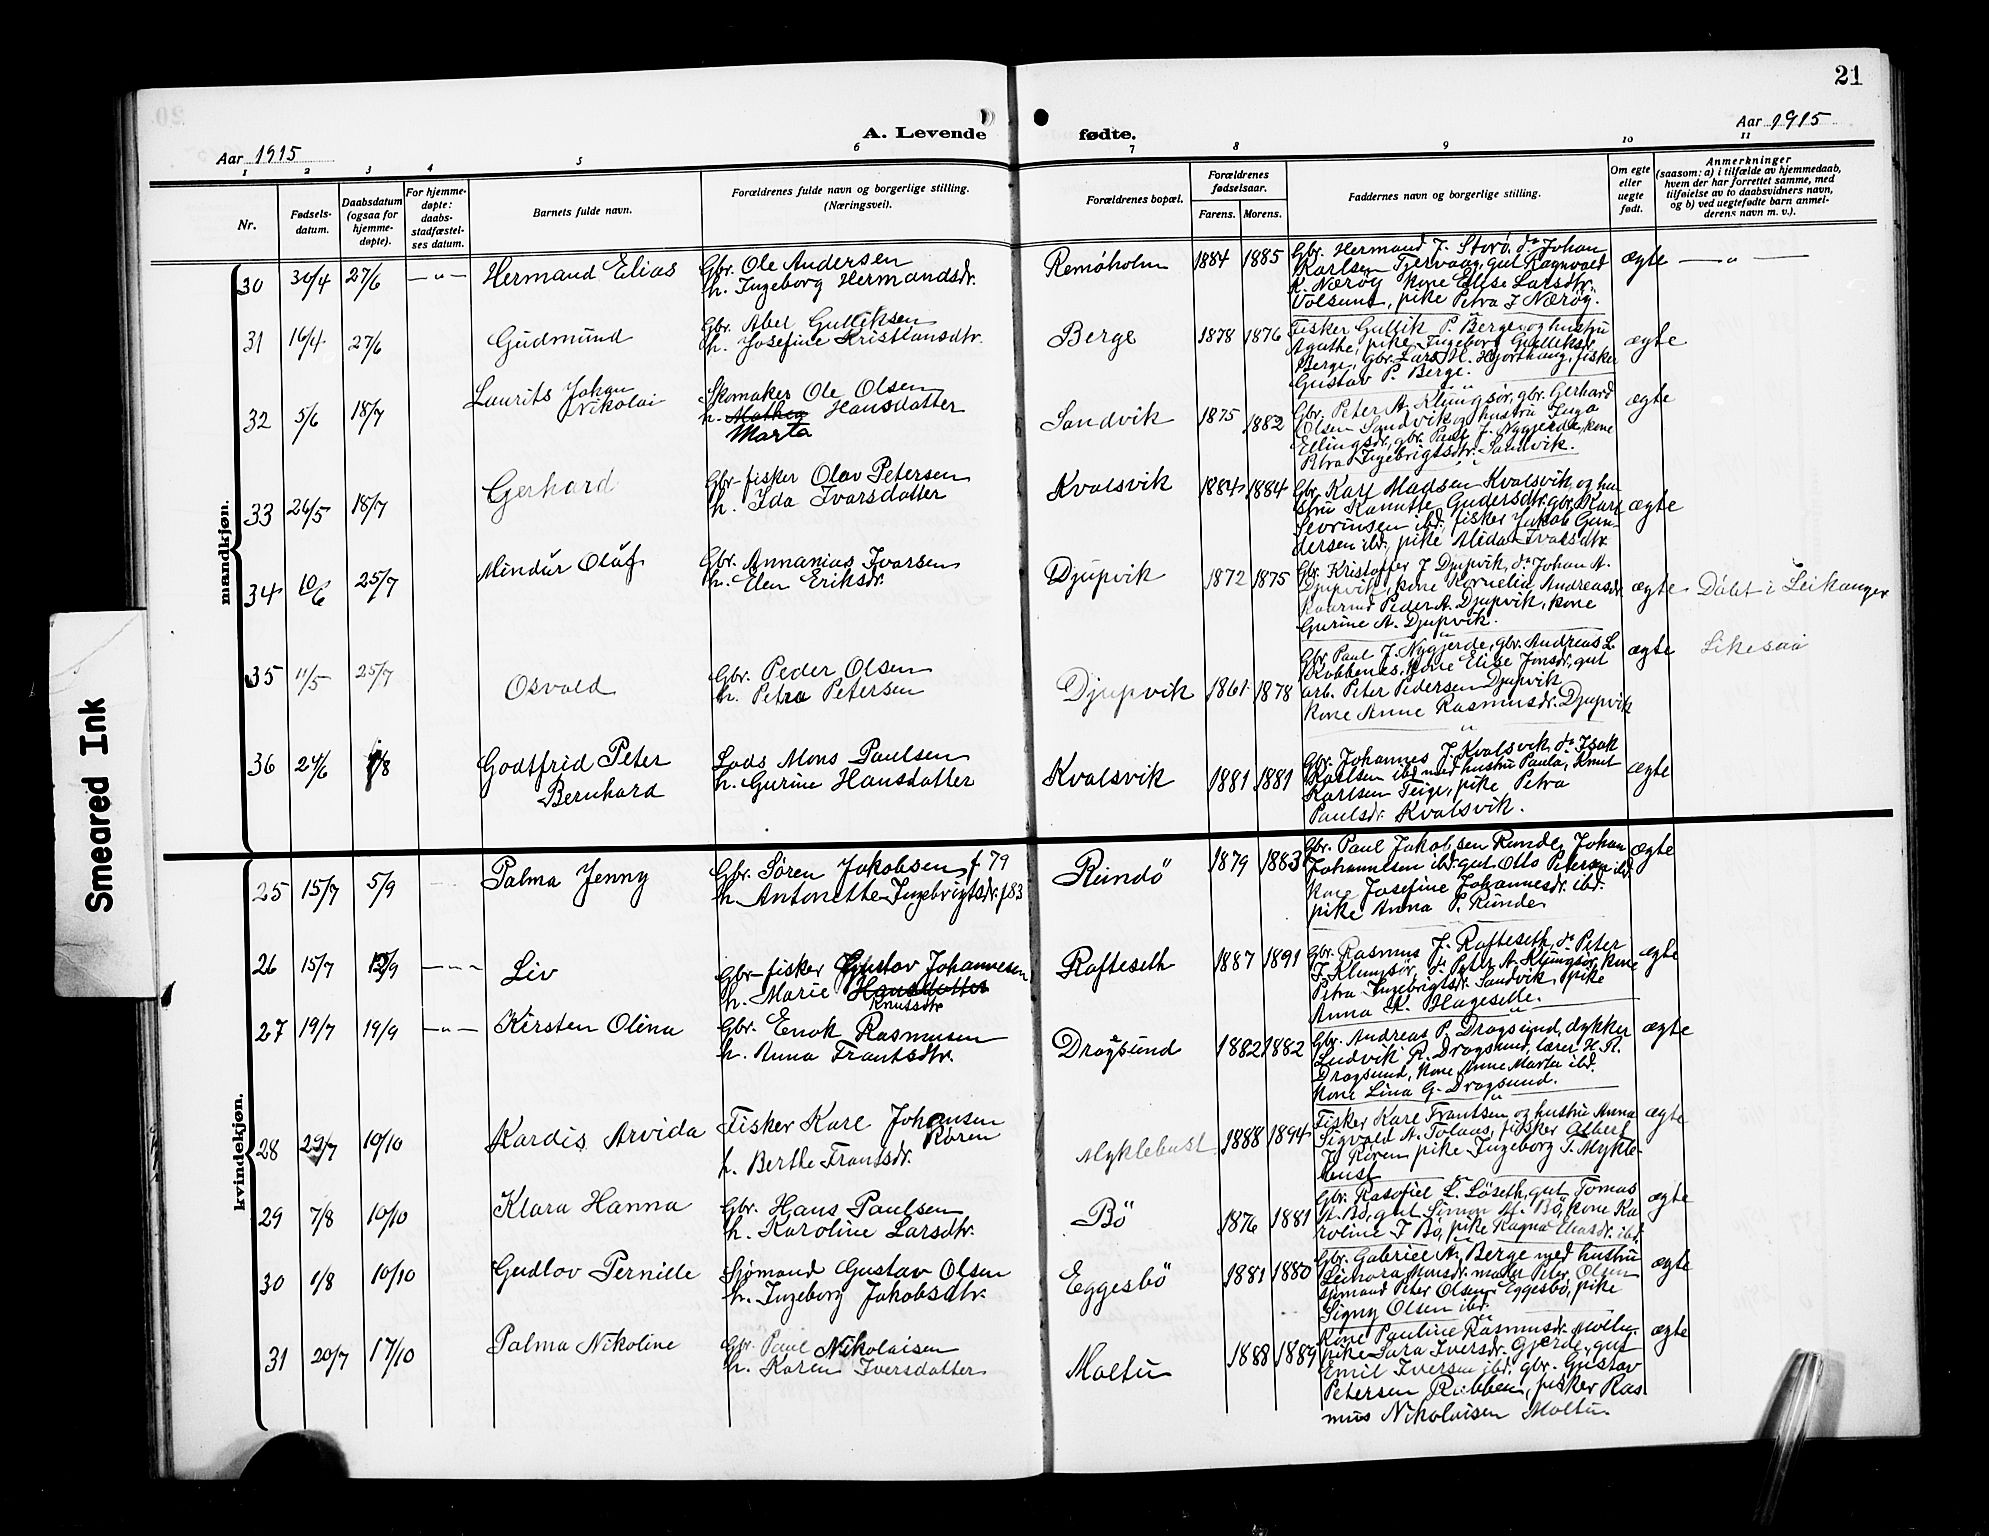 21
Aar 1915
A. Levende fødte.
Aar 1915
1 2 3 4 5 6 7 8 9 10 11
Nr.
Fødsels-
datum.
Daabsdatum
(ogsaa for
hjemme-
døpte).
For hjemme-
døpte:
daabs-
stadfæstel-
ses datum.
Barnets fulde navn.
Forældrenes fulde navn og borgerlige stilling.
(Næringsvei).
Forældrenes bopæl.
Forældrenes
fødselsaar.
Farens. Morens.
Faddernes navn og borgerlige stilling.
Om egte
eller
uegte
født.
Anmerkninger
(saasom: a) i tilfælde av hjemmedaab,
hvem der har forrettet samme, med
tilføielse av to daabsvidners navn,
og b) ved uegtefødte barn anmel-
derens navn m. v.).
mandkjøn.
30 30/4 27/6 —"— Hermand Elias
Gbr. Ole Andersen
h. Ingeborg Hermandsdr.
Remøholm 1884 1885
Gbr. Hermand J. Storø, do Johan
Karlsen Tjervaag, gut Ragnvald
K. Nærøy kone Elise Larsdtr.
Volsund, pike Petra J Nærøy.
ægte —"—
31 16/4 27/6 Gudmund
Gbr. Abel Gulliksen
h. Josefine Kristiansdtr.
Berge 1878 1876
Fisker Gullik P. Berge og hustru
Agathe, pike Ingeborg Gulliksdr.
Berge, gbr. Lars M. Hjorthaug, fisker
Gustav P. Berge.
ægte
32 5/6 18/7 Laurits Johan
Nikolai
Skomaker Ole Olsen
h. Mathea Hansdatter
Marta
Sandvik 1875 1882
Gbr. Peter A. Klungsør, gbr. Gerhard
Olsen Sandvik og hustru Inga
Ellingsdr., gbr. Paul J. Nygjerde, kone
Petra Ingebrigtsdtr. Sandvik.
ægte
33 26/5 18/7 Gerhard
Gbr-fisker Olav Petersen
h. Ida Ivarsdatter
Kvalsvik 1884 1884
Gbr. Karl Madsen Kvalsvik og hu-
stru Kanutte Gundersdtr. gbr. Karl
Sevrinsen ibd., fisker Jakob Gun-
dersen ibd., pike Alida Ivarsdtr.
ægte
34 10/6 25/7 Mindur Oluf
Gbr. Annanias Ivarsen
h. Elen Eriksdr.
Djupvik 1872 1875
Gbr. Kristoffer J Djupvik, do Johan A.
Djupvik, kone Kornelia Andreasdr.
Peder A. Djupvik, kone
Gurine A. Djupvik.
ægte Døbt i Leikanger
35 11/5 25/7 Osvald
Gbr. Peder Olsen
h. Petra Petersen
Djupvik 1861 1878
Gbr. Paul J. Nygjerde, gbr. Andreas L.
Kobbenes, kone Elise Jonsdr, gut
arb. Peter Pedersen Djupvik
kone Anne Rasmusdr. Djupvik
ægte Likesaa
36 24/6 1/8 Godtfrid Peter
Bernhard
Lods Mons Paulsen
h. Gurine Hansdatter
Kvalsvik 1881 1881
Gbr. Johannes J. Kvalsvik, do Isak
Karlsen ibd med hustru Paula, Knut
Karlsen Teige, pike Petra
Paulsdr. Kvalsvik.
ægte
kvindekjøn.
25 15/7 5/9 Palma Jenny
Gbr. Søren Jakobsen f 79
h. Antonette Ingebrigtsdr. f 83
Rundö 1879 1883
Gbr. Paul Jakobsen Runde, Johan
Johannesen ibd. gut Otto Petersen ibd.
Kone Josefine Johannesdr. ibd.
pike Anna P. Runde
ægte
26 15/7 12/9 — " — Liv
Gbr-fisker Gustav Johannesen
h. Marie Hansdatter
Knutsdtr
Rafteseth 1887 1891
Gbr. Rasmus J. Rafteseth, do Peter
J. Klungsør, do Peter A. Klungsør, kone
Petra Ingebrigtsdr. Sandvik, pike
Anna K. Hageselle.
ægte
27 19/7 19/9 —"— Kirsten Olina
Gbr. Enok Rasmusen
h. Anna Frantsdtr.
Dragsund 1882 1882
Gbr. Andreas P. Dragsund, dykker
Ludvik R. Dragsund, lærer H. R.
Dragsund, kone Anne Marta ibd.
kone Lina G. Dragsund.
ægte
28 29/7 10/10 Kardis Arvida
Fisker Karl Johansen
Røren
h. Berthe Frantsdr.
Myklebust 1888 1894
Fisker Karl Frantsen og hustru Anna
Sigvald A. Tolaas, fisker Albert
J. Røren pike Ingeborg T. Mykle-
bust
ægte
29 7/8 10/10 Klara Hanna
Gbr. Hans Paulsen
h. Karoline Larsdtr.
Bö 1876 1881
Gbr. Rasofiel L. Løseth, gut Tomas
H. Bö, gut Simon H. Bö, kone Ka-
roline J Bö, pike Ragna Eliasdr. ibd.
ægte
30 1/8 10/10 Gudlov Pernille
Sjømand Gustav Olsen
h. Ingeborg Jakobsdtr.
Eggesbö 1881 1880
Gbr. Gabriel A. Berge med hustru
Leonora Monsdr. maler Peter Olsen
sjømand Peter Olsen Eggesbö, pike
Signy Olsen ibd.
ægte
31 20/7 17/10 Palma Nikoline
Gbr. Paul Nikolaisen
h. Karen Iversdatter
Moltu 1888 1889
Kone Pauline Rasmusdr. Moltu
pike Sara Iversdr. Gjerde, gut
Emil Iversen ibd. gbr. Gustav
Petersen Kubben, fisker Ras-
mus Nikolaisen Moltu.
ægte
Smeared Ink